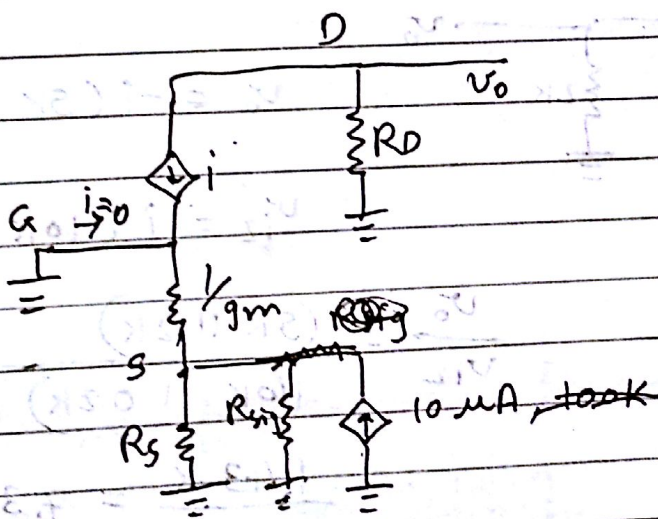 D
v₀
R_D
i
G i=0
1/gm
S
R_S
R_sig
10 μA, 100K